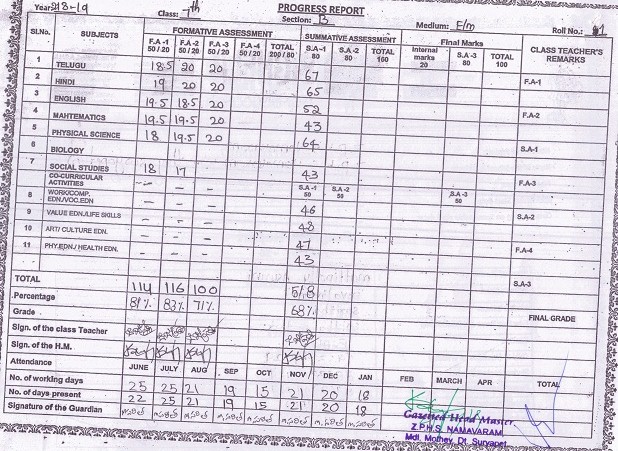 PROGRESS REPORT
Year: 2018-19 Class: 7th Section: B Medium: E/m Roll No.: 
Sl.No. SUBJECTS FORMATIVE ASSESSMENT SUMMATIVE ASSESSMENT Final Marks CLASS TEACHER'S REMARKS
F.A-1 50/20 F.A-2 50/20 F.A-3 50/20 F.A-4 50/20 TOTAL 200/80 S.A-1 80 S.A-2 80 TOTAL 160 Internal marks 20 S.A-3 80 TOTAL 100
1 TELUGU 18.5 20 20 67 F.A-1
2 HINDI 19 20 20 65
3 ENGLISH 19.5 18.5 20 52 F.A-2
4 MAHTEMATICS 19.5 19.5 20 43
5 PHYSICAL SCIENCE 18 19.5 20 64 S.A-1
6 BIOLOGY
7 SOCIAL STUDIES 18 17 43 F.A-3
CO-CURRICULAR ACTIVITIES - - - S.A-1 50 S.A-2 50 S.A-3 50
8 WORK/COMP. EDN./VOC.EDN - - - 46 S.A-2
9 VALUE EDN./LIFE SKILLS - - - 48
10 ART/ CULTURE EDN. - - - 47 F.A-4
11 PHY.EDN./ HEALTH EDN. - - - 43
TOTAL 114 116 100 518 S.A-3
Percentage 81% 83% 71% 68%
Grade FINAL GRADE
Sign. of the class Teacher
Sign. of the H.M.
Attendance JUNE JULY AUG SEP OCT NOV DEC JAN FEB MARCH APR TOTAL
No. of working days 25 25 21 19 15 21 20 18
No. of days present 22 25 21 19 15 21 20 18
Signature of the Guardian
Gazetted Head Master
Z.P.H.S. NAMAVARAM
Mdl. Mothey, Dt. Suryapet